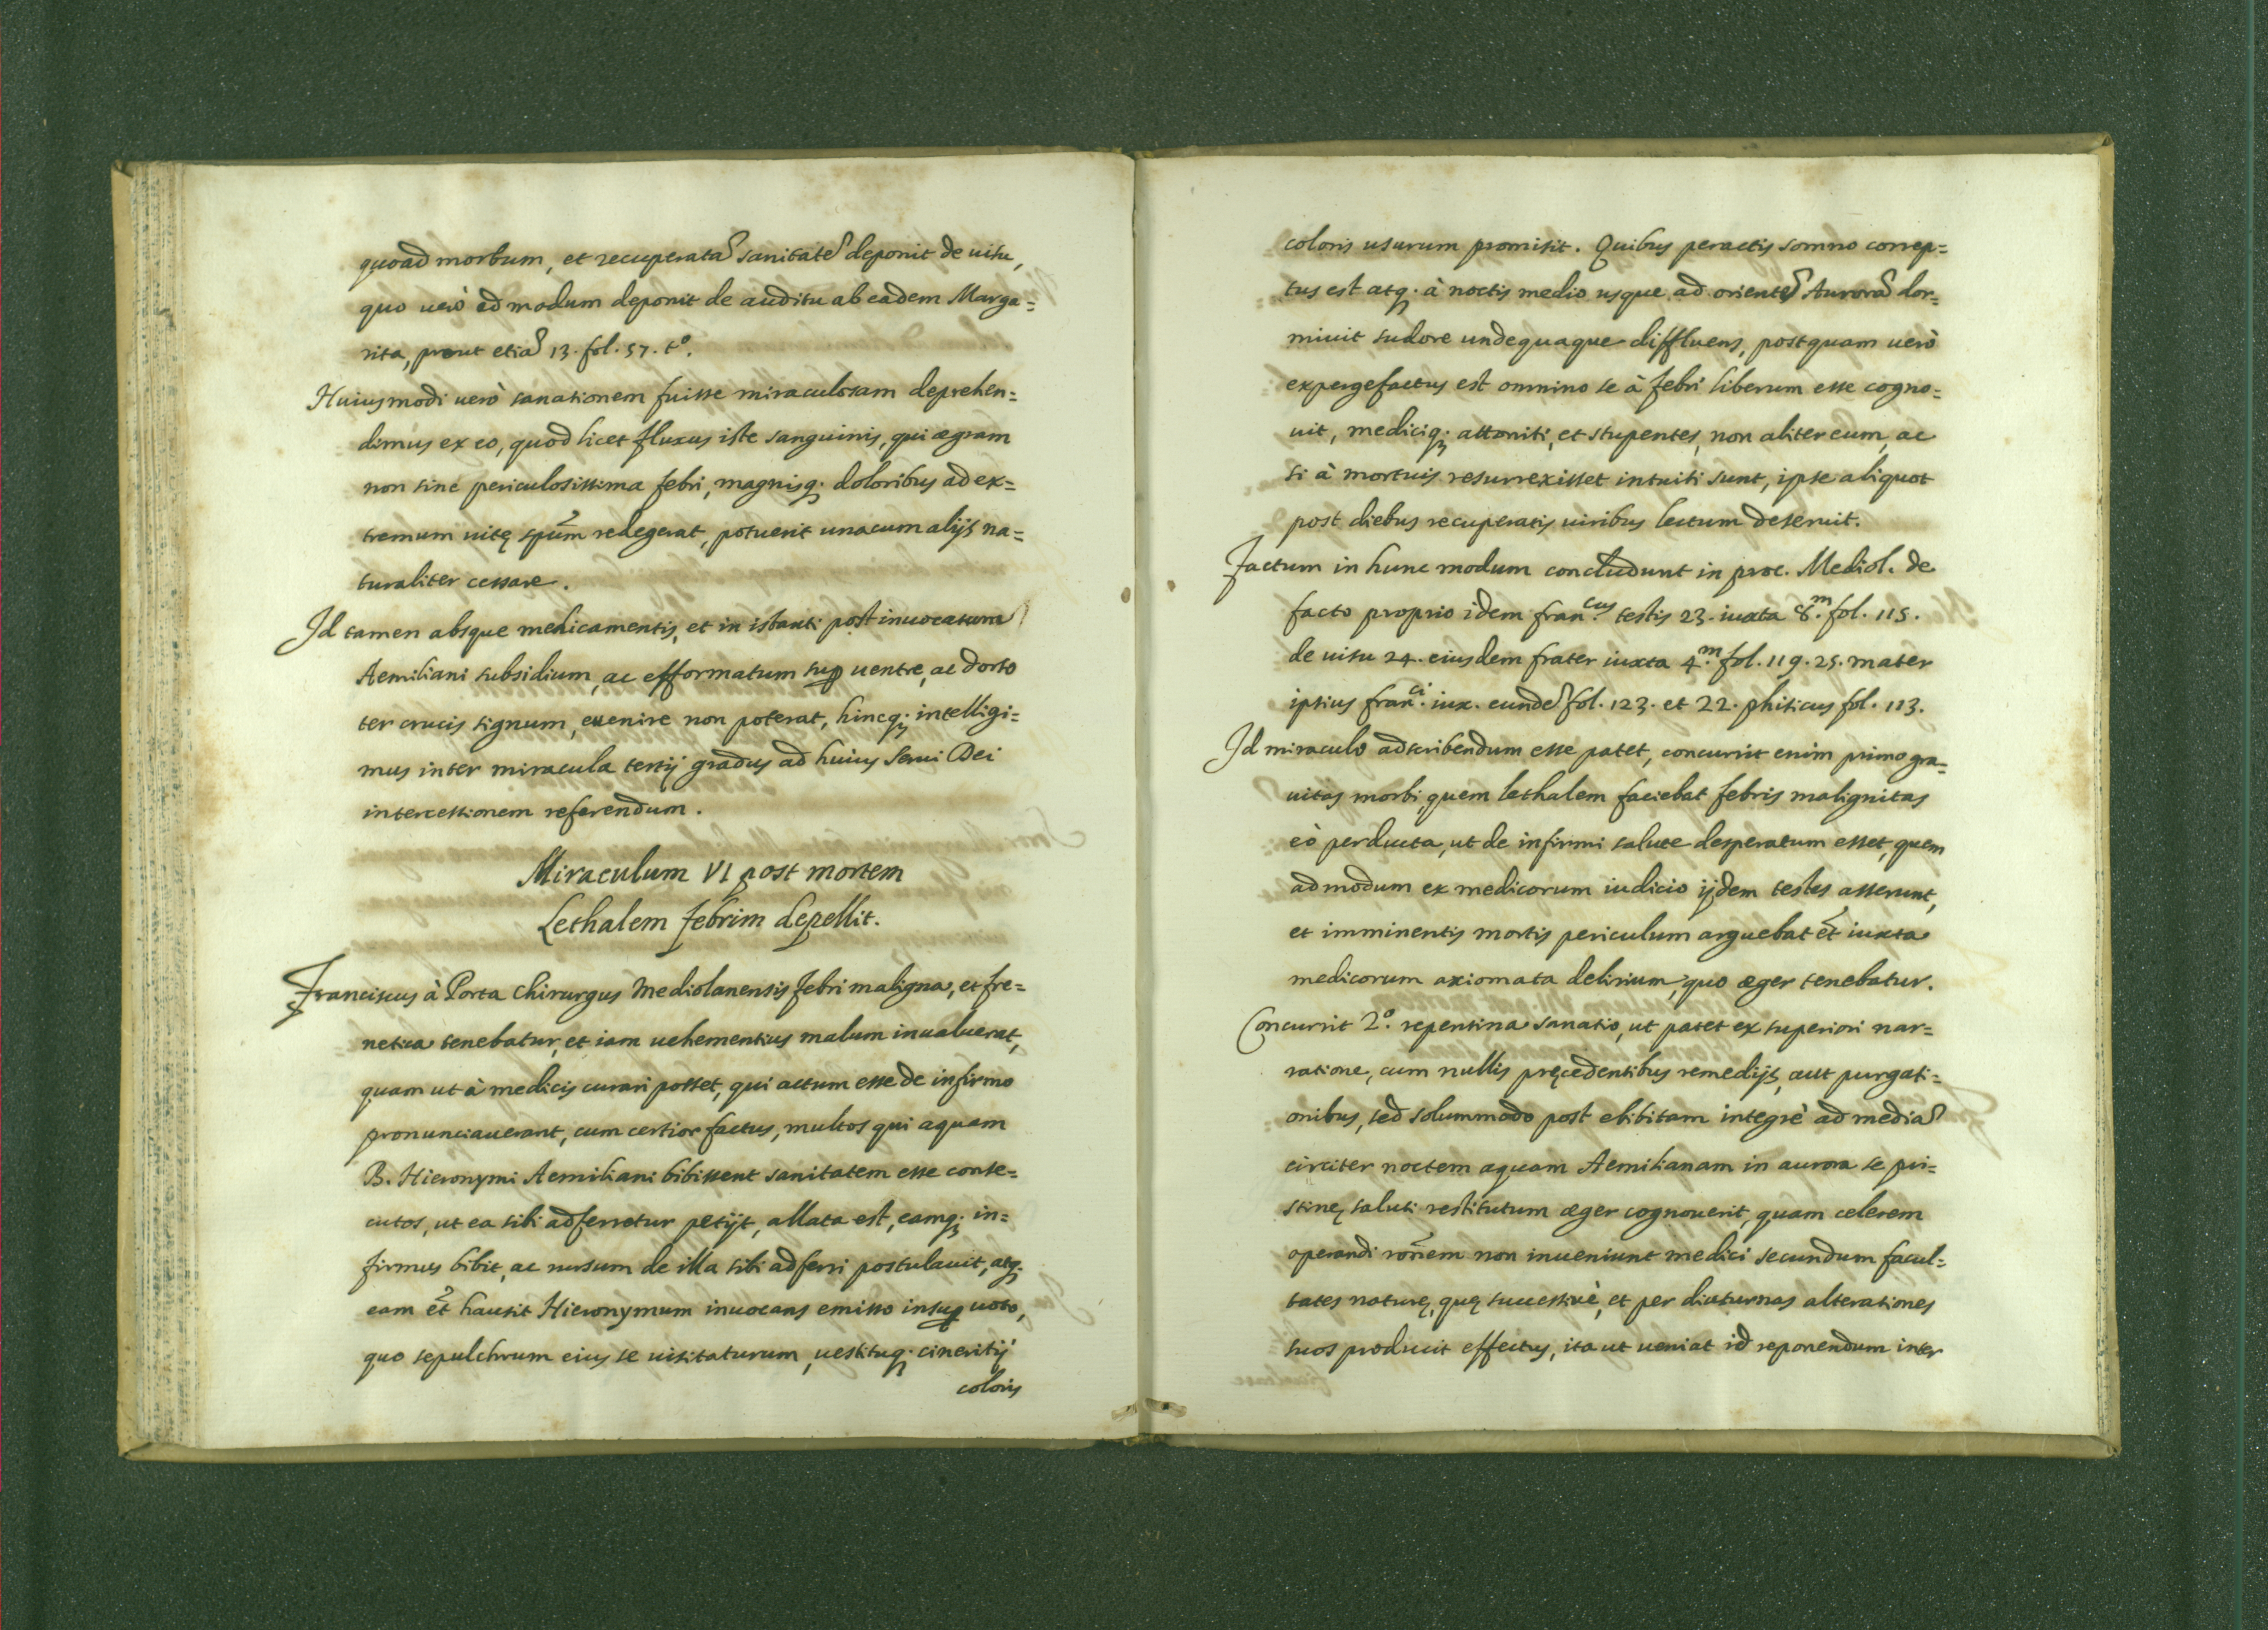 quoad morbum, et recuperatã sanitatẽ deponit de uisu,
quo uerò ad modum deponit de auditu ab eadem Marga=
rita, prout etiã 13. fol. 57. tº.
Huiusmodi uerò sanationem fuisse miraculosam deprehen=
dimus ex eo, quod licet fluxus iste sanguinis, qui ægram
non sine periculosissima febri, magnisq; doloribus ad ex=
tremum uitę spũm redegerat, potuerit unacum alijs na=
turaliter cessare.
Id tamen absque medicamentis, et in istanti post inuocatum
Aemiliani subsidium, ac efformatum sup uentre, ac dorso
ter crucis signum, euenire non poterat, hincq; intelligi=
mus inter miracula tertij gradus ad huius Serui Dei
intercessionem referendum.
Miraculum VI post mortem
Lethalem febrim depellit.
Franciscus à Porta Chirurgus Mediolanensis febri maligna, et fre=
netica tenebatur, et iam uehementius malum inualuerat,
quam ut à medicis curari posset, qui actum esse de infirmo
pronunciauerant, cum certior factus, multos qui aquam
B. Hieronymi Aemiliani bibissent sanitatem esse conse=
cutos, ut ea sibi adferretur petijt, allata est, eamq; in=
firmus bibit, ac rursum de illa sibi adferri postulauit, atq;
eam et̃ hausit Hieronymum inuocans emisso insup uoto,
quo sepulchrum eius se uisitaturum, uestituq; cineritij
coloris
coloris usurum promisit. Quibus peractis somno correp=
tus est atq; à noctis medio usque ad orientẽ Aurorã dor=
miuit sudore undequaque diffluens, postquam uerò
expergefactus est omnino se à febri liberum esse cogno=
uit, mediciq; attoniti, et stupentes, non aliter eum, ac
si à mortuis resurrexisset intuiti sunt, ipse aliquot
post diebus recuperatis uiribus lectum deseruit.
Factum in hunc modum concludunt in proc. Mediol. de
facto proprio idem Fran.cus testis 23. iuxta 8.m fol. 115.
de uisu 24. eiusdem frater iuxta 4.m fol. 119. 25. mater
ipsius Fran.ci iux. eundẽ fol. 123. et 22. phisicus fol. 113.
Id miraculo adscribendum esse patet, concurrit enim primo gra=
uitas morbi, quem lethalem faciebat febris malignitas
eò perducta, ut de infirmi salute desperatum esset, quem
admodum ex medicorum iudicio ijdem testes asserunt,
et imminentis mortis periculum arguebat et̃ iuxta
medicorum axiomata delirium, quo æger tenebatur.
Concurrit 2º. repentina sanatio, ut patet ex superiori nar=
ratione, cum nullis pręcedentibus remedijs, aut purgati=
onibus, sed solummodo post ebibitam integrè ad mediã
circiter noctem aquam Aemilianam in aurora se pri=
stinę saluti restitutum æger cognouerit, quam celerem
operandi rõnem non inueniunt medici secundum facul=
tates naturę, quę successiuè, et per diuturnas alterationes
suos producit effectus, ita ut ueniat id reponendum inter